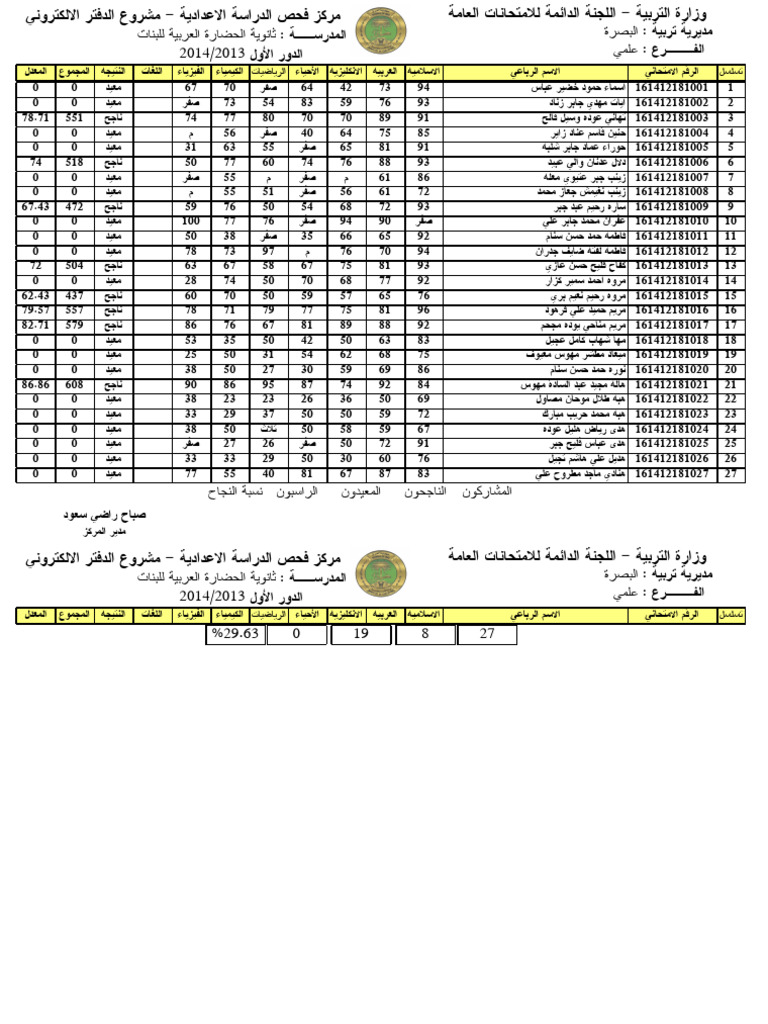 وزارة التربية – اللجنة الدائمة للامتحانات العامة
مركز فحص الدراسة الاعدادية – مشروع الدفتر الالكتروني
مديرية تربية : البصرة
المدرســـــة : ثانوية الحضارة العربية للبنات
الفــــــرع : علمي
الدور الأول 2014/2013
تسلسل الرقم الامتحاني الاسم الرباعي الاسلامية العربيه الانكليزيه الأحياء الرياضيات الكيمياء الفيزياء اللغات النتيجه المجموع المعدل
1 161412181001 اسماء حمود خضير عباس 94 73 42 64 صفر 70 67 معيد 0 0
2 161412181002 ايات مهدي جابر زناد 93 76 59 83 54 73 صفر معيد 0 0
3 161412181003 تهاني عوده وسيل فالح 91 89 70 70 80 77 74 ناجح 551 78.71
4 161412181004 حنين قاسم عناد زاير 85 75 64 40 صفر 56 م معيد 0 0
5 161412181005 حوراء عماد جابر شليه 91 81 65 صفر 55 63 31 معيد 0 0
6 161412181006 دلال عدنان والي عبيد 93 88 76 74 60 77 50 ناجح 518 74
7 161412181007 زينب جبر عنبوي معله 86 61 م صفر م 55 صفر معيد 0 0
8 161412181008 زينب نغيمش جعاز محمد 72 61 56 صفر 51 55 م معيد 0 0
9 161412181009 ساره رحيم عبد جبر 93 72 68 54 50 76 59 ناجح 472 67.43
10 161412181010 غفران محمد جابر علي صفر 90 94 صفر 76 77 100 معيد 0 0
11 161412181011 فاطمه حمد حسن سنام 92 65 66 35 صفر 38 50 معيد 0 0
12 161412181012 فاطمه لفته ضايف جدران 94 70 76 م 97 73 78 معيد 0 0
13 161412181013 كفاح فليح حسن غازي 93 81 75 67 58 67 63 ناجح 504 72
14 161412181014 مروه احمد سمير كزار 92 77 68 70 50 74 28 معيد 0 0
15 161412181015 مروه رحيم نعيم بري 76 65 57 59 50 70 60 ناجح 437 62.43
16 161412181016 مريم حميد علي فرهود 96 81 75 77 79 71 78 ناجح 557 79.57
17 161412181017 مريم مناحي بوده مجحم 92 88 89 81 67 86 76 ناجح 579 82.71
18 161412181018 مها شهاب كامل عجيل 83 63 50 42 50 35 53 معيد 0 0
19 161412181019 ميعاد مطشر مهوس معيوف 75 68 62 54 31 50 25 معيد 0 0
20 161412181020 نوره حمد حسن سنام 86 69 59 30 27 50 38 معيد 0 0
21 161412181021 هاله مجيد عبد الساده مهوس 84 92 74 87 95 86 90 ناجح 608 86.86
22 161412181022 هبه طلال موحان مصاول 69 50 36 26 23 23 38 معيد 0 0
23 161412181023 هبه محمد حريب مبارك 72 59 50 50 37 29 33 معيد 0 0
24 161412181024 هدى رياض هليل عوده 67 59 58 50 ثلاث 50 38 معيد 0 0
25 161412181025 هدى عباس فليح جبر 91 72 50 صفر 26 27 صفر معيد 0 0
26 161412181026 هديل علي هاشم نجيل 76 60 30 50 29 33 33 معيد 0 0
27 161412181027 هنادي ماجد مطروح علي 83 87 67 81 40 55 77 معيد 0 0
المشاركون الناجحون المعيدون الراسبون نسبة النجاح
صباح راضي سعود
مدير المركز
وزارة التربية – اللجنة الدائمة للامتحانات العامة
مركز فحص الدراسة الاعدادية – مشروع الدفتر الالكتروني
مديرية تربية : البصرة
المدرســـــة : ثانوية الحضارة العربية للبنات
الفــــــرع : علمي
الدور الأول 2014/2013
تسلسل الرقم الامتحاني الاسم الرباعي الاسلامية العربيه الانكليزيه الأحياء الرياضيات الكيمياء الفيزياء اللغات النتيجه المجموع المعدل
27 8 19 0 %29.63